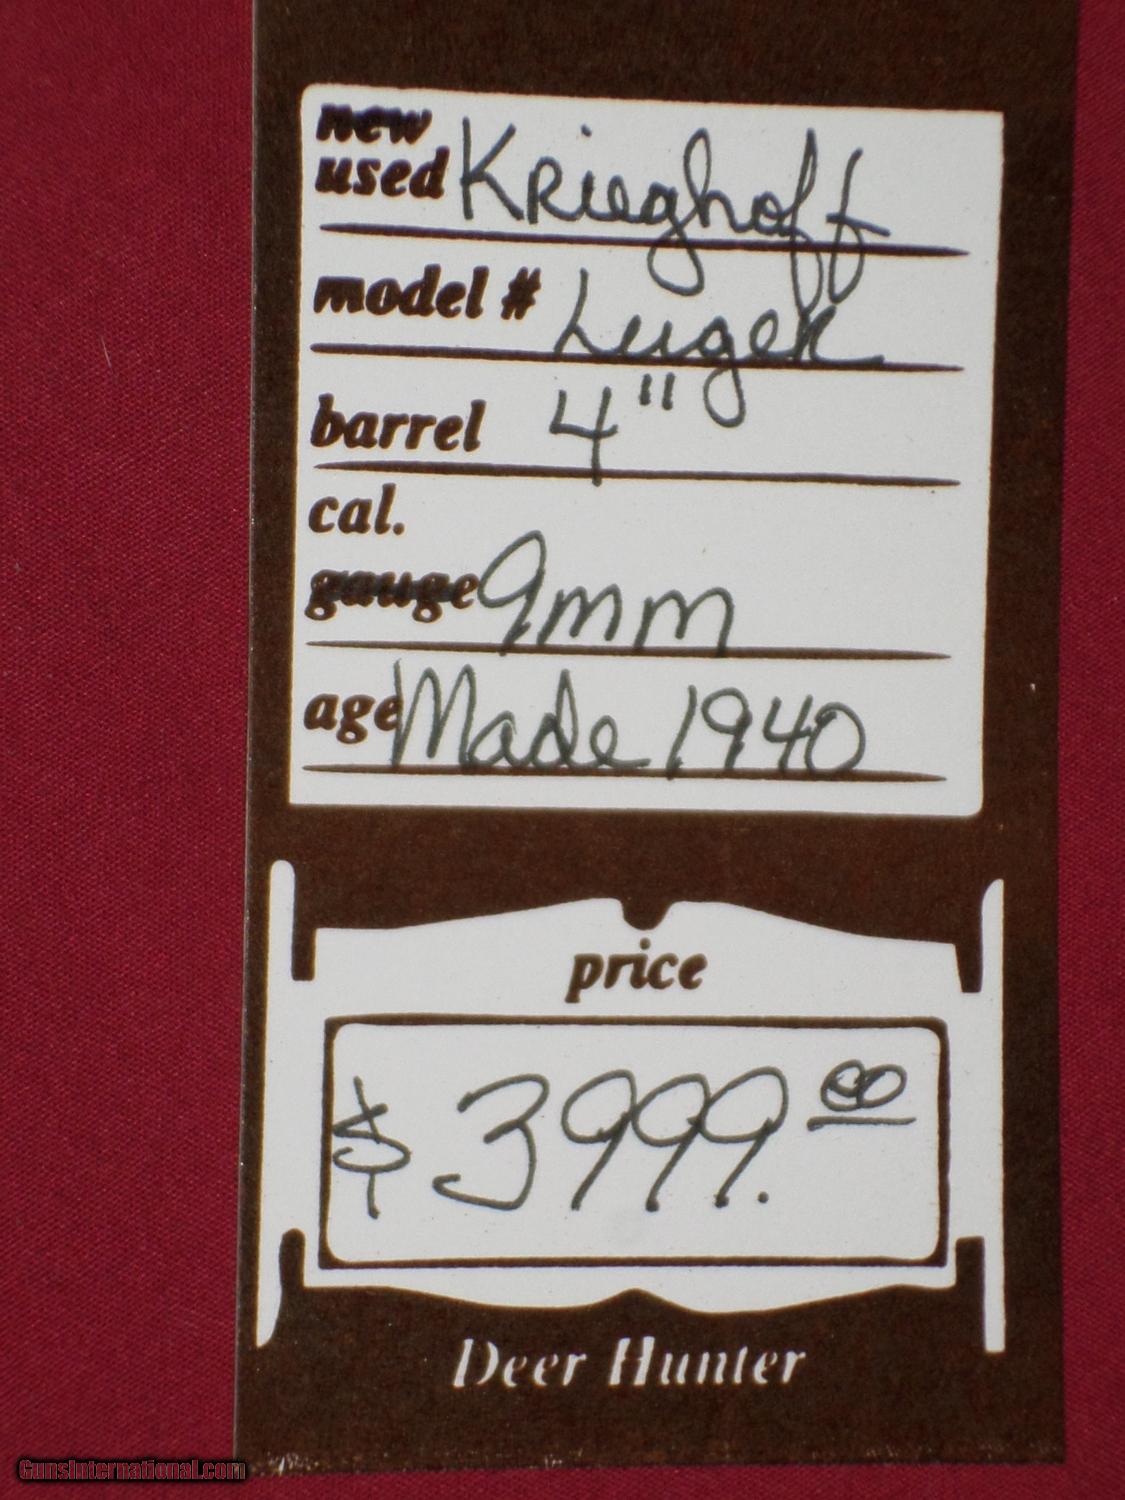 new
used Krieghoff
model # Luger
barrel 4"
cal.
gauge 9mm
age Made 1940
price
$3999.00
Deer Hunter
GunsInternational.com